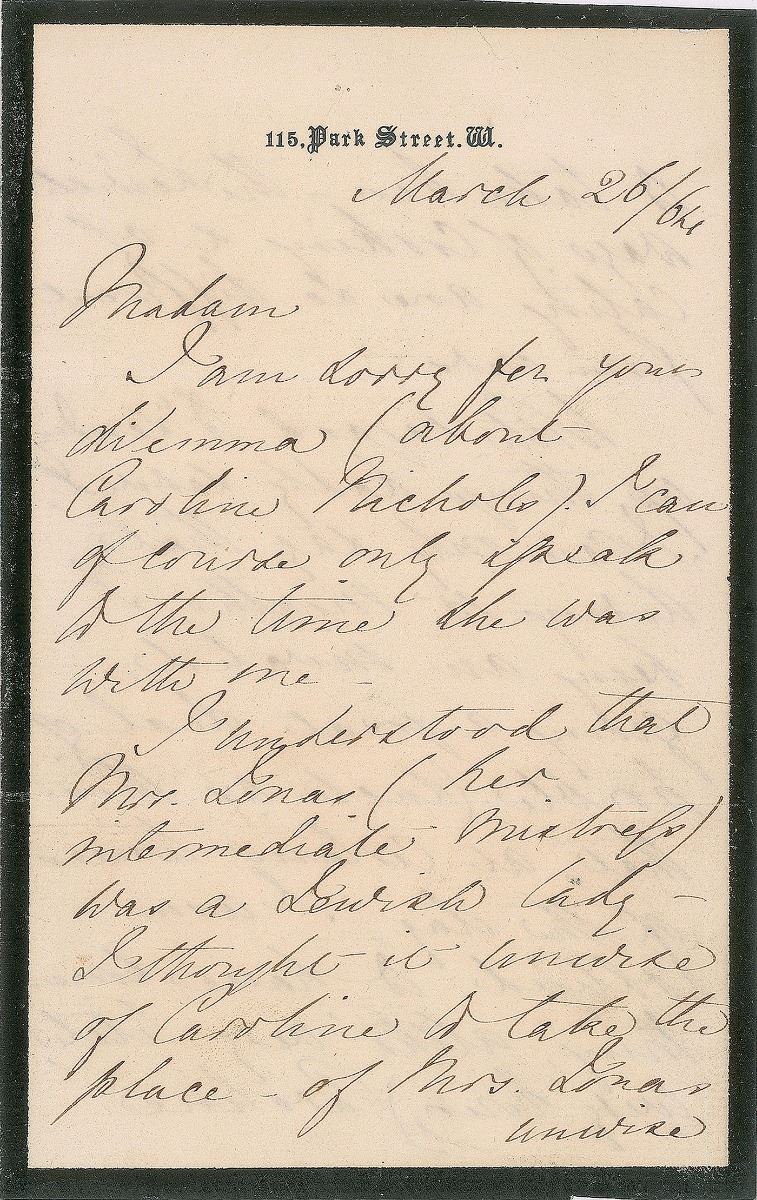 115, Park Street. W.
March 26/64
Madam
I am sorry for your
dilemma (about
Caroline Nichols). I can
of course only speak
to the time she was
with me -
I understood that
Mrs. Jonas (her
intermediate Mistress)
was a Jewish lady -
I thought it unwise
of Caroline to take the
place - of Mrs. Jonas
unwise